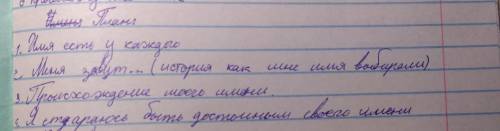 План
1. Имя есть у каждого
2. Меня зовут... (история как мне имя выбирали)
3. Происхождение моего имени
4. Я стараюсь быть достойным своего имени